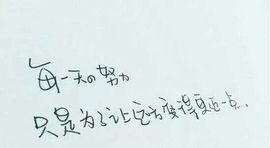 每一天の努力
只是为了让远方变得更近一点...